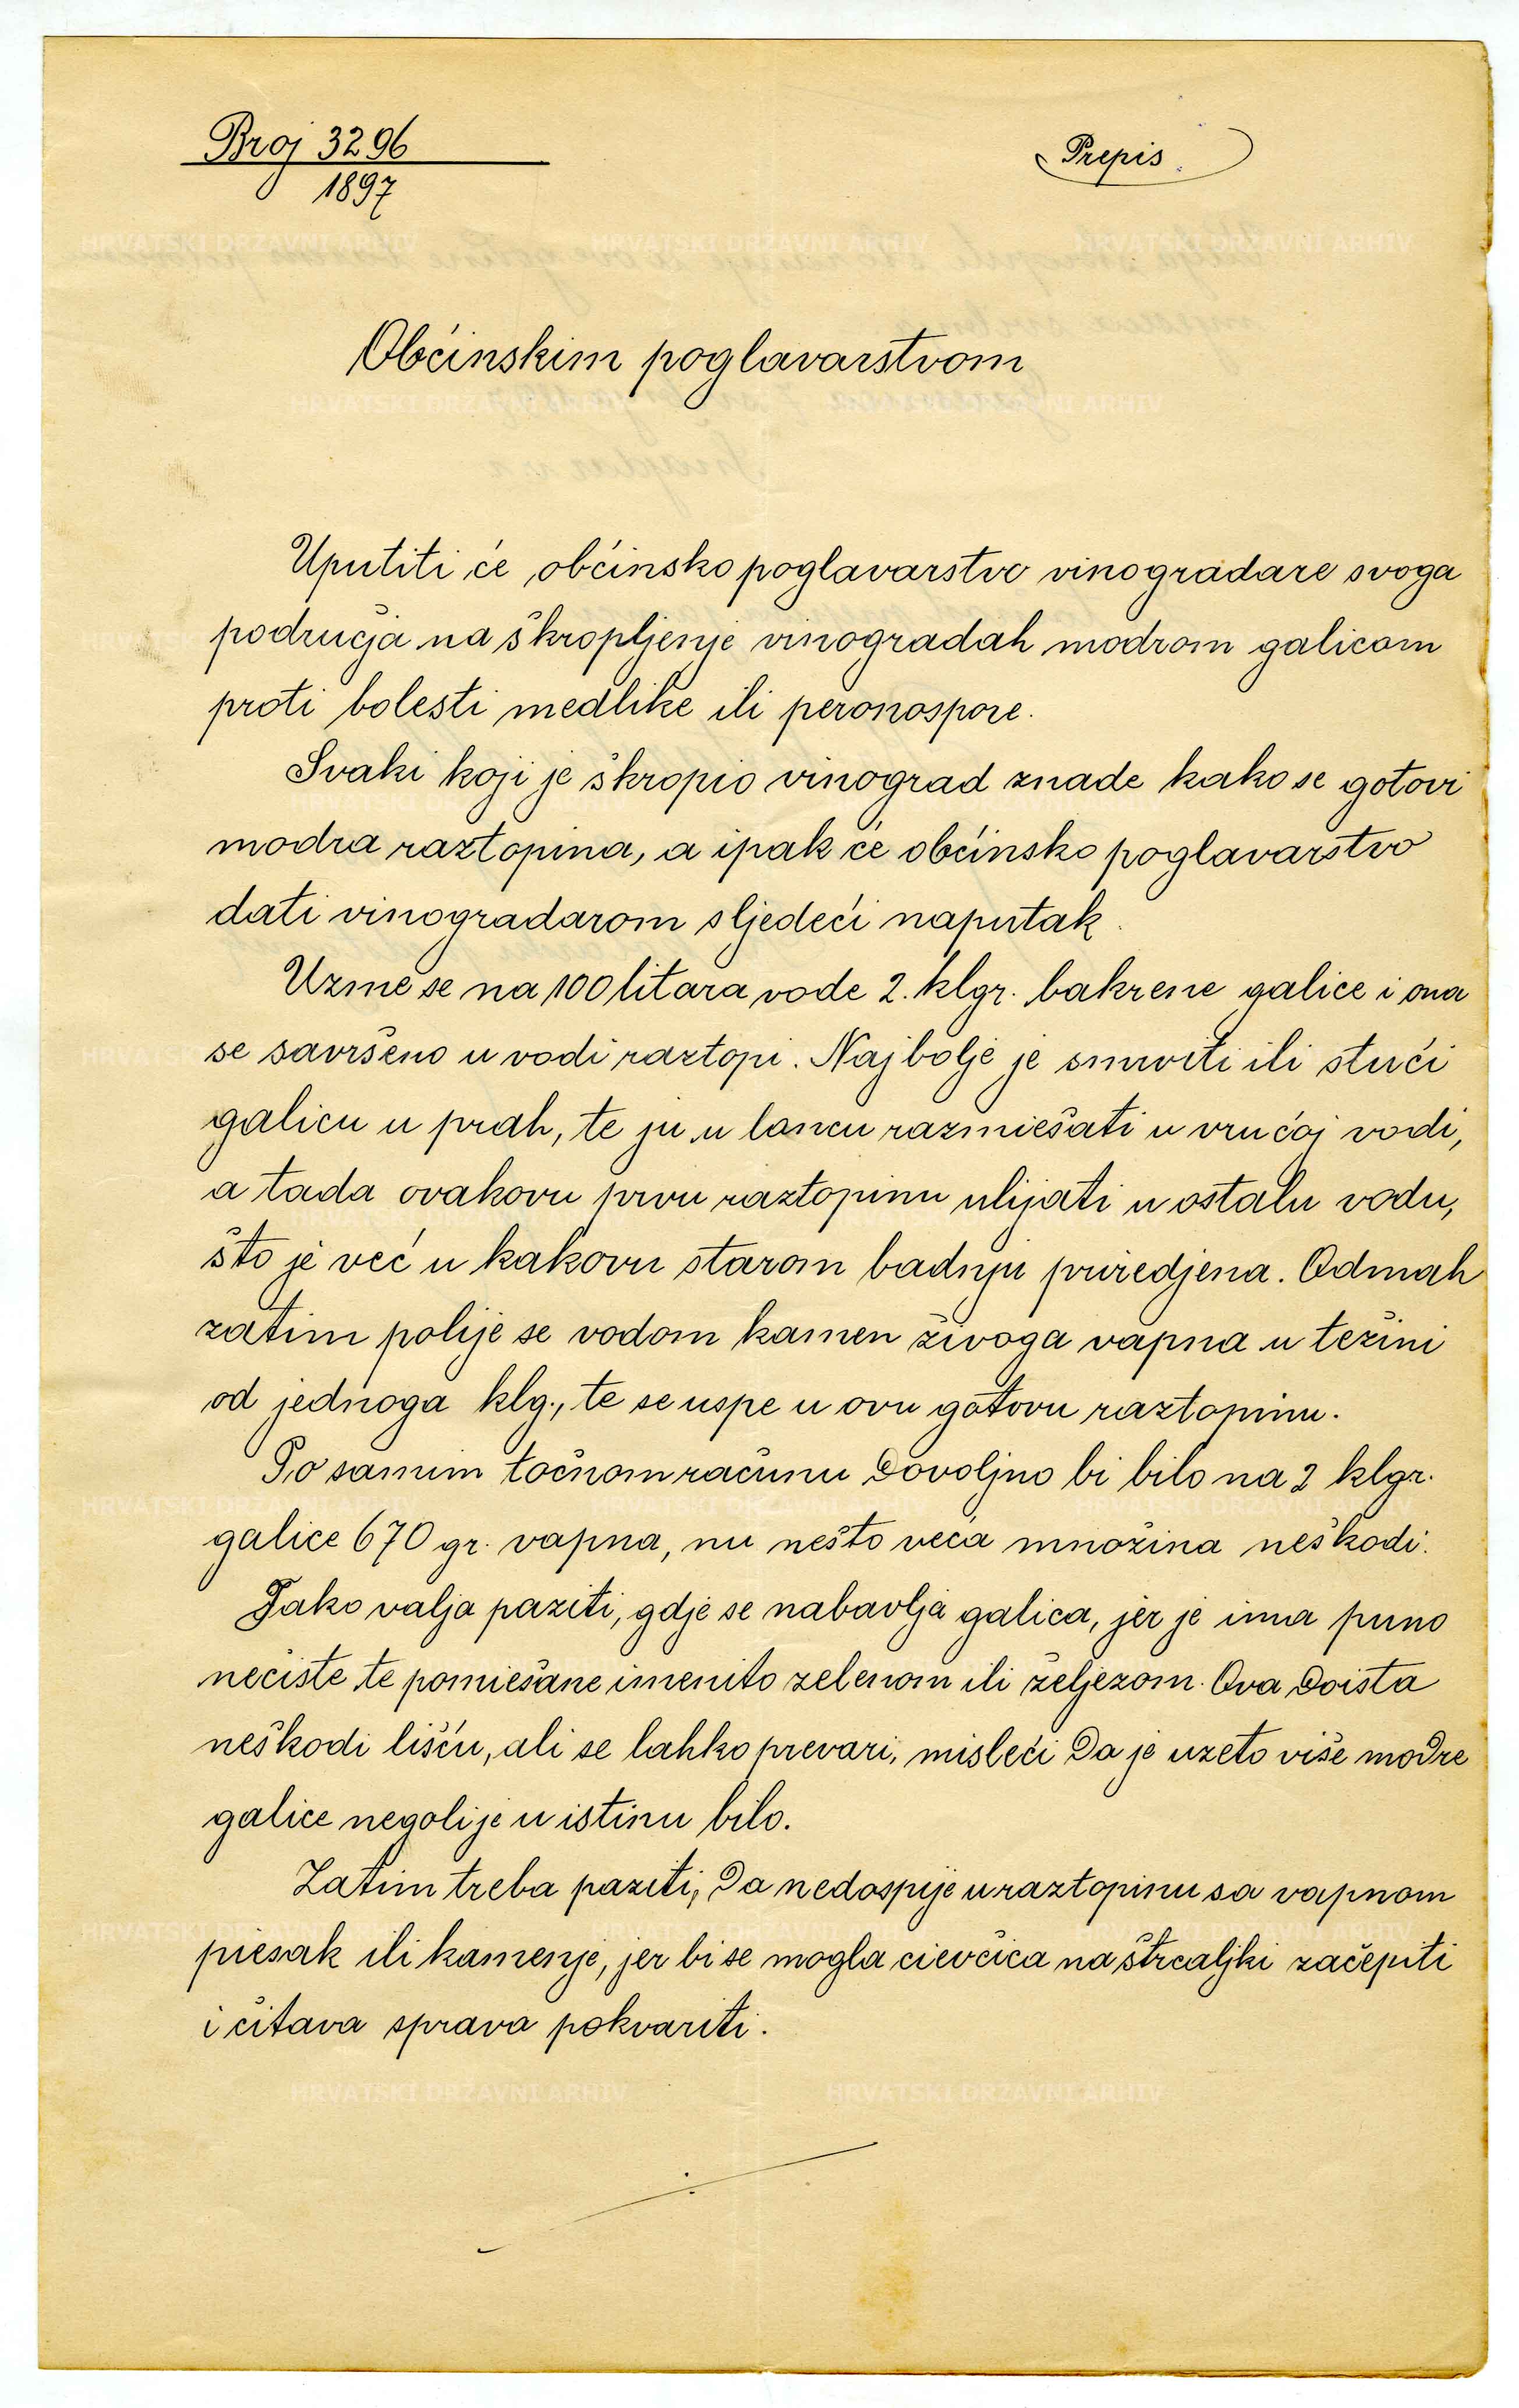 Broj 3296
1897
Prepis
Obćinskim poglavarstvom
Uputiti će obćinsko poglavarstvo vinogradare svoga
područja na škropljenje vinogradah modrom galicom
proti bolesti medlike ili peronospore.
Svaki koji je škropio vinograd znade kako se gotovi
modra raztopina, a ipak će obćinsko poglavarstvo
dati vinogradarom sljedeći naputak.
Uzme se na 100 litara vode 2. klgr. bakrene galice i ona
se savršeno u vodi raztopi. Najbolje je smrviti ili stući
galicu u prah, te ju u loncu razmiešati u vrućoj vodi,
a tada ovakovu prvu raztopinu ulijati u ostalu vodu,
što je već u kakovu starom badnju priredjena. Odmah
zatim polije se vodom kamen živoga vapna u težini
od jednoga klg., te se uspe u ovu gotovu raztopinu.
Po samim točnom računu dovoljno bi bilo na 2 klgr.
galice 670 gr. vapna, nu nešto veća množina neškodi.
Jako valja paziti, gdje se nabavlja galica, jer je ima puno
nečiste te pomiešane imenito zelenom ili željezom. Ova doista
neškodi lišću, ali se lahko prevari, misleći da je uzeto više modre
galice negoli je u istinu bilo.
Zatim treba paziti, da nedospije u raztopinu sa vapnom
piesak ili kamenje, jer bi se mogla cievčica na štrcaljki začepiti
i čitava sprava pokvariti.
HRVATSKI DRŽAVNI ARHIV